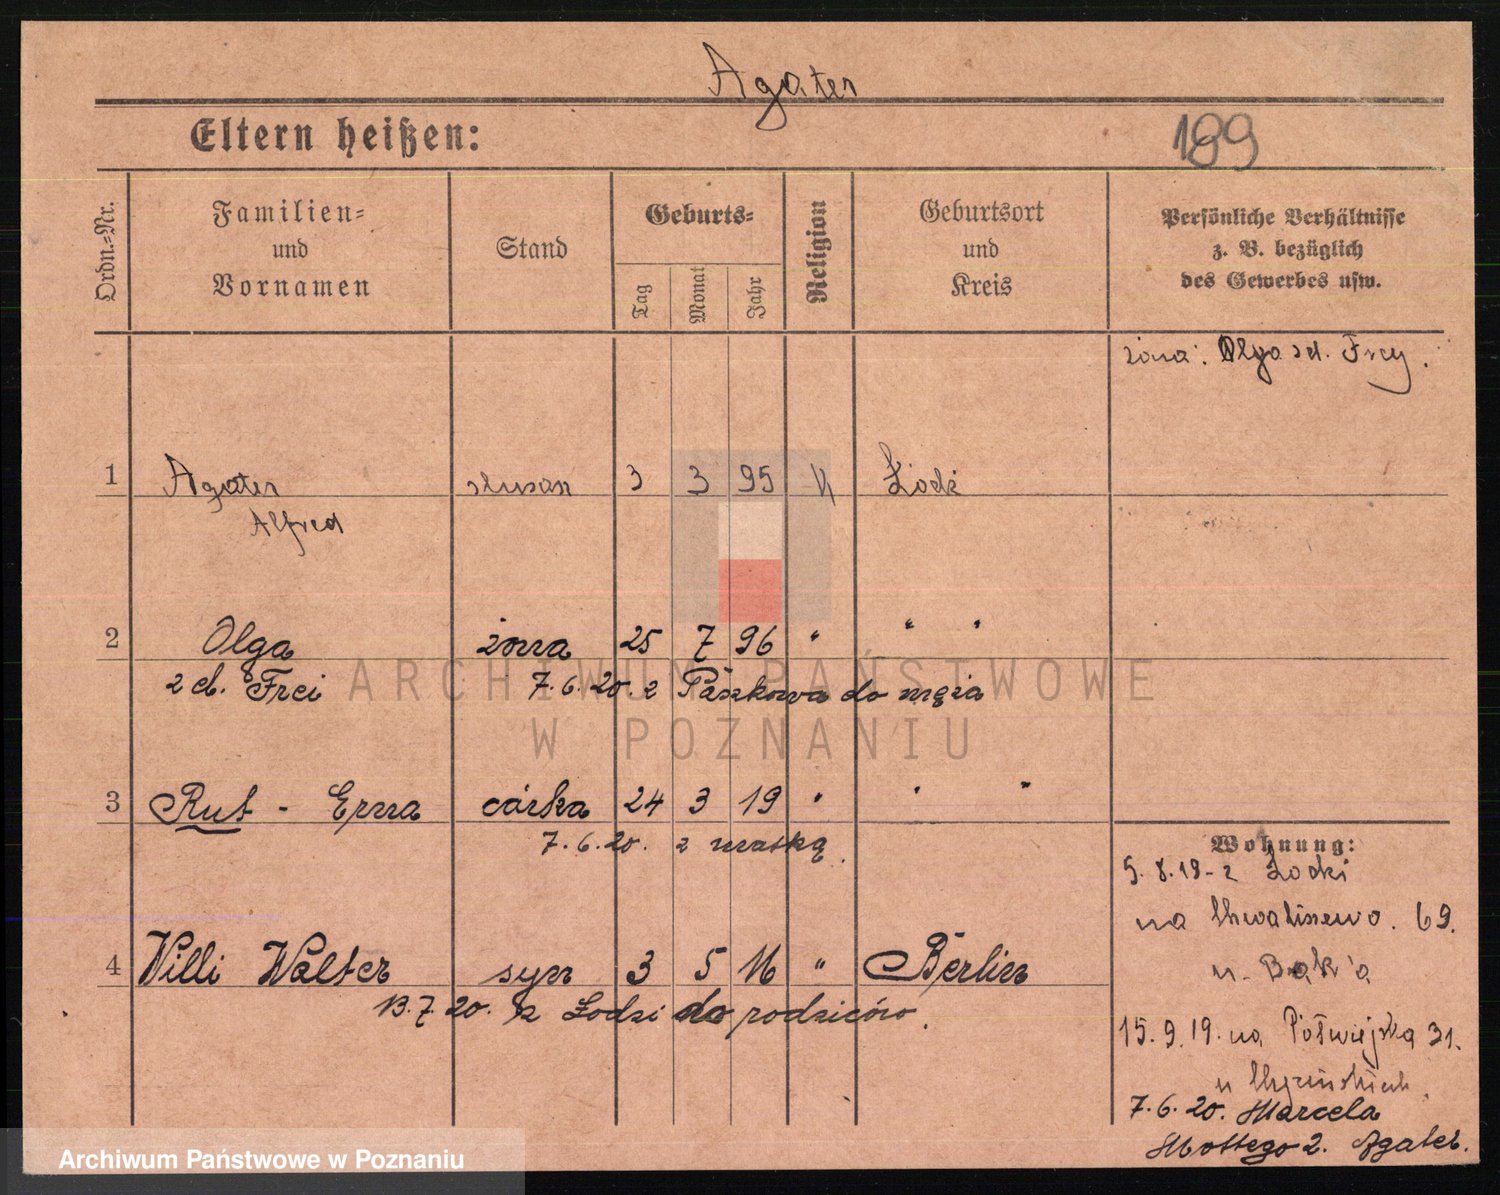 Agater
Eltern heißen:
189
Ordn.-Nr.
Familien-
und
Vornamen
Stand
Geburts-
Tag
Monat
Jahr
Religion
Geburtsort
und
Kreis
Persönliche Verhältnisse
z. B. bezüglich
des Gewerbes usw.
żona: Olga zd. Frey.
1 Agater 3 3 95 Łódź
Alfred
2 Olga żona 25 7 96 " " "
z d. Frei 7.6.20. z Paszkowa do męża
ARCHIWUM PAŃSTWOWE
W POZNANIU
3 Rut - Erna córka 24 3 19 " " "
7.6.20. z matką.
Wohnung:
5.8.19 - z Łodzi
na Chwaliszewo. 69.
4 Villi Walter syn 3 5 16 " Berlin
u
13.7.20. z Łodzi do rodziców.
15.9.19. na Półwiejską 31.
u
7.6.20. Marcela
Mottego 2. Agater.
Archiwum Państwowe w Poznaniu